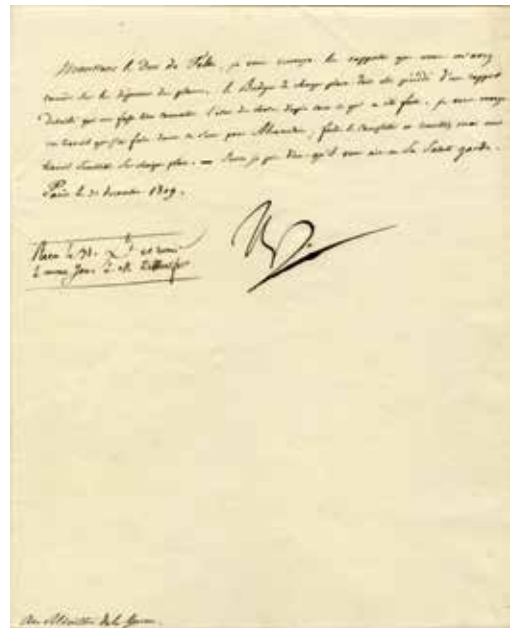 Monsieur le Duc de Feltre, je vous envoye les rapports que vous m'avez
remis sur les dépenses des places. Le Budget de chaque place doit être précédé d'un rapport
détaillé qui me fasse bien connaître l'état des choses d'après tout ce qui a été fait. je vous envoye
un travail que j'ai fait faire pour Alexandrie; faites le completter et
travail semblable sur chaque place. = Sur ce je prie Dieu qu'il vous ait en Sa Sainte garde.
Paris le 31 décembre 1809.
Reçu le 31. Xbre et remis
le même jour à M.
Au Ministre de la Guerre.